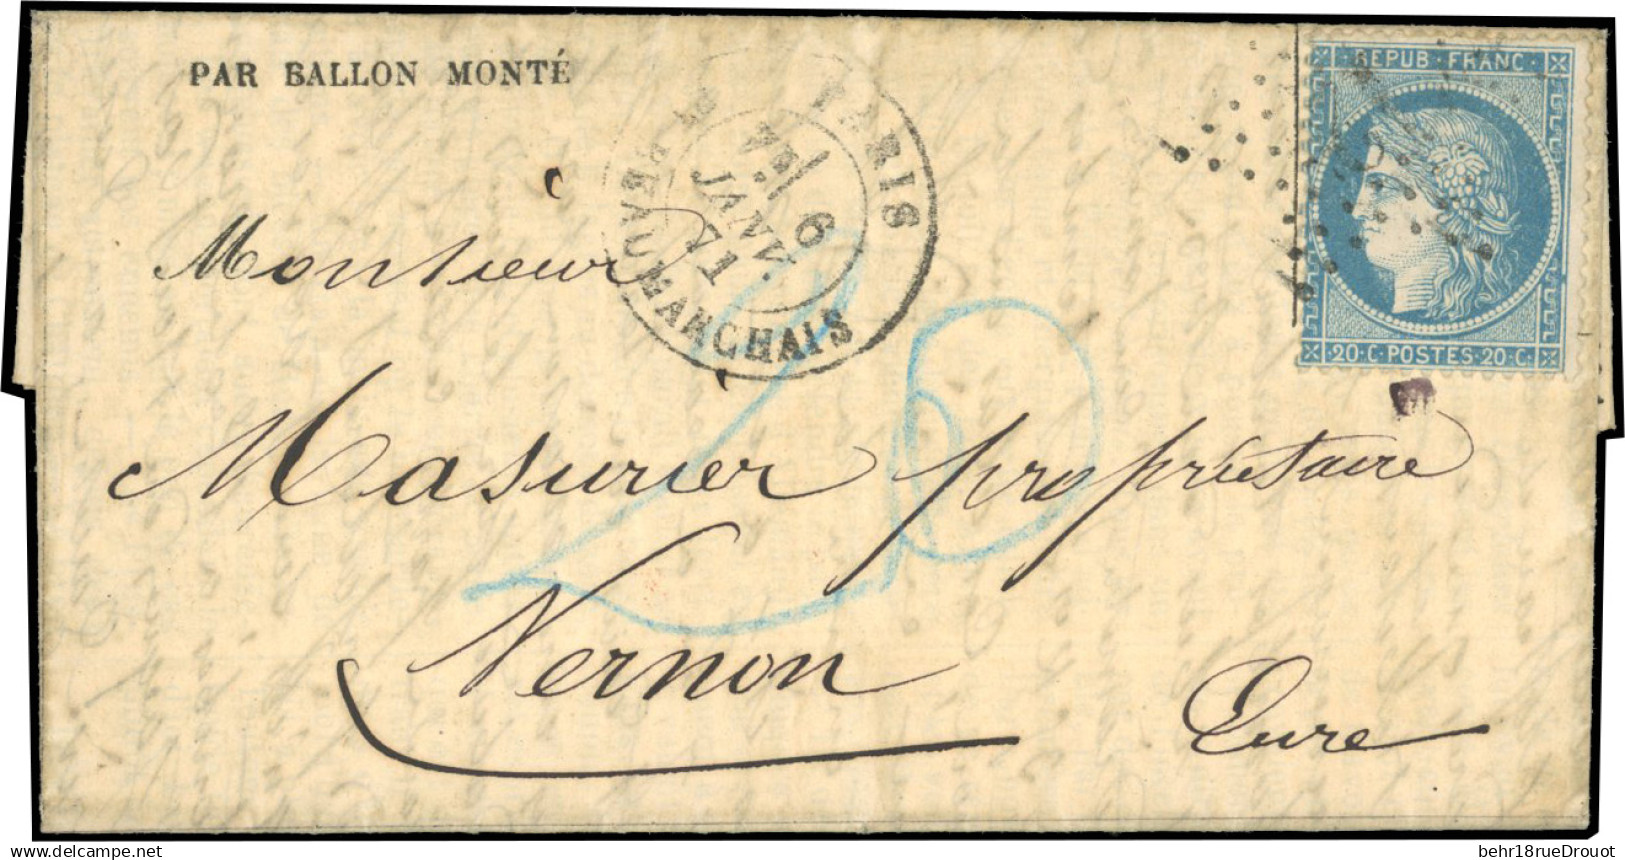 PAR BALLON MONTÉ
PARIS
6
JANV.
71
BEAUMARCHAIS
REPUB·FRANC
20·C·POSTES·20·C
20
Monsieur
Masurier propriétaire
Vernon
Eure
www.delcampe.net
behr18rueDrouot